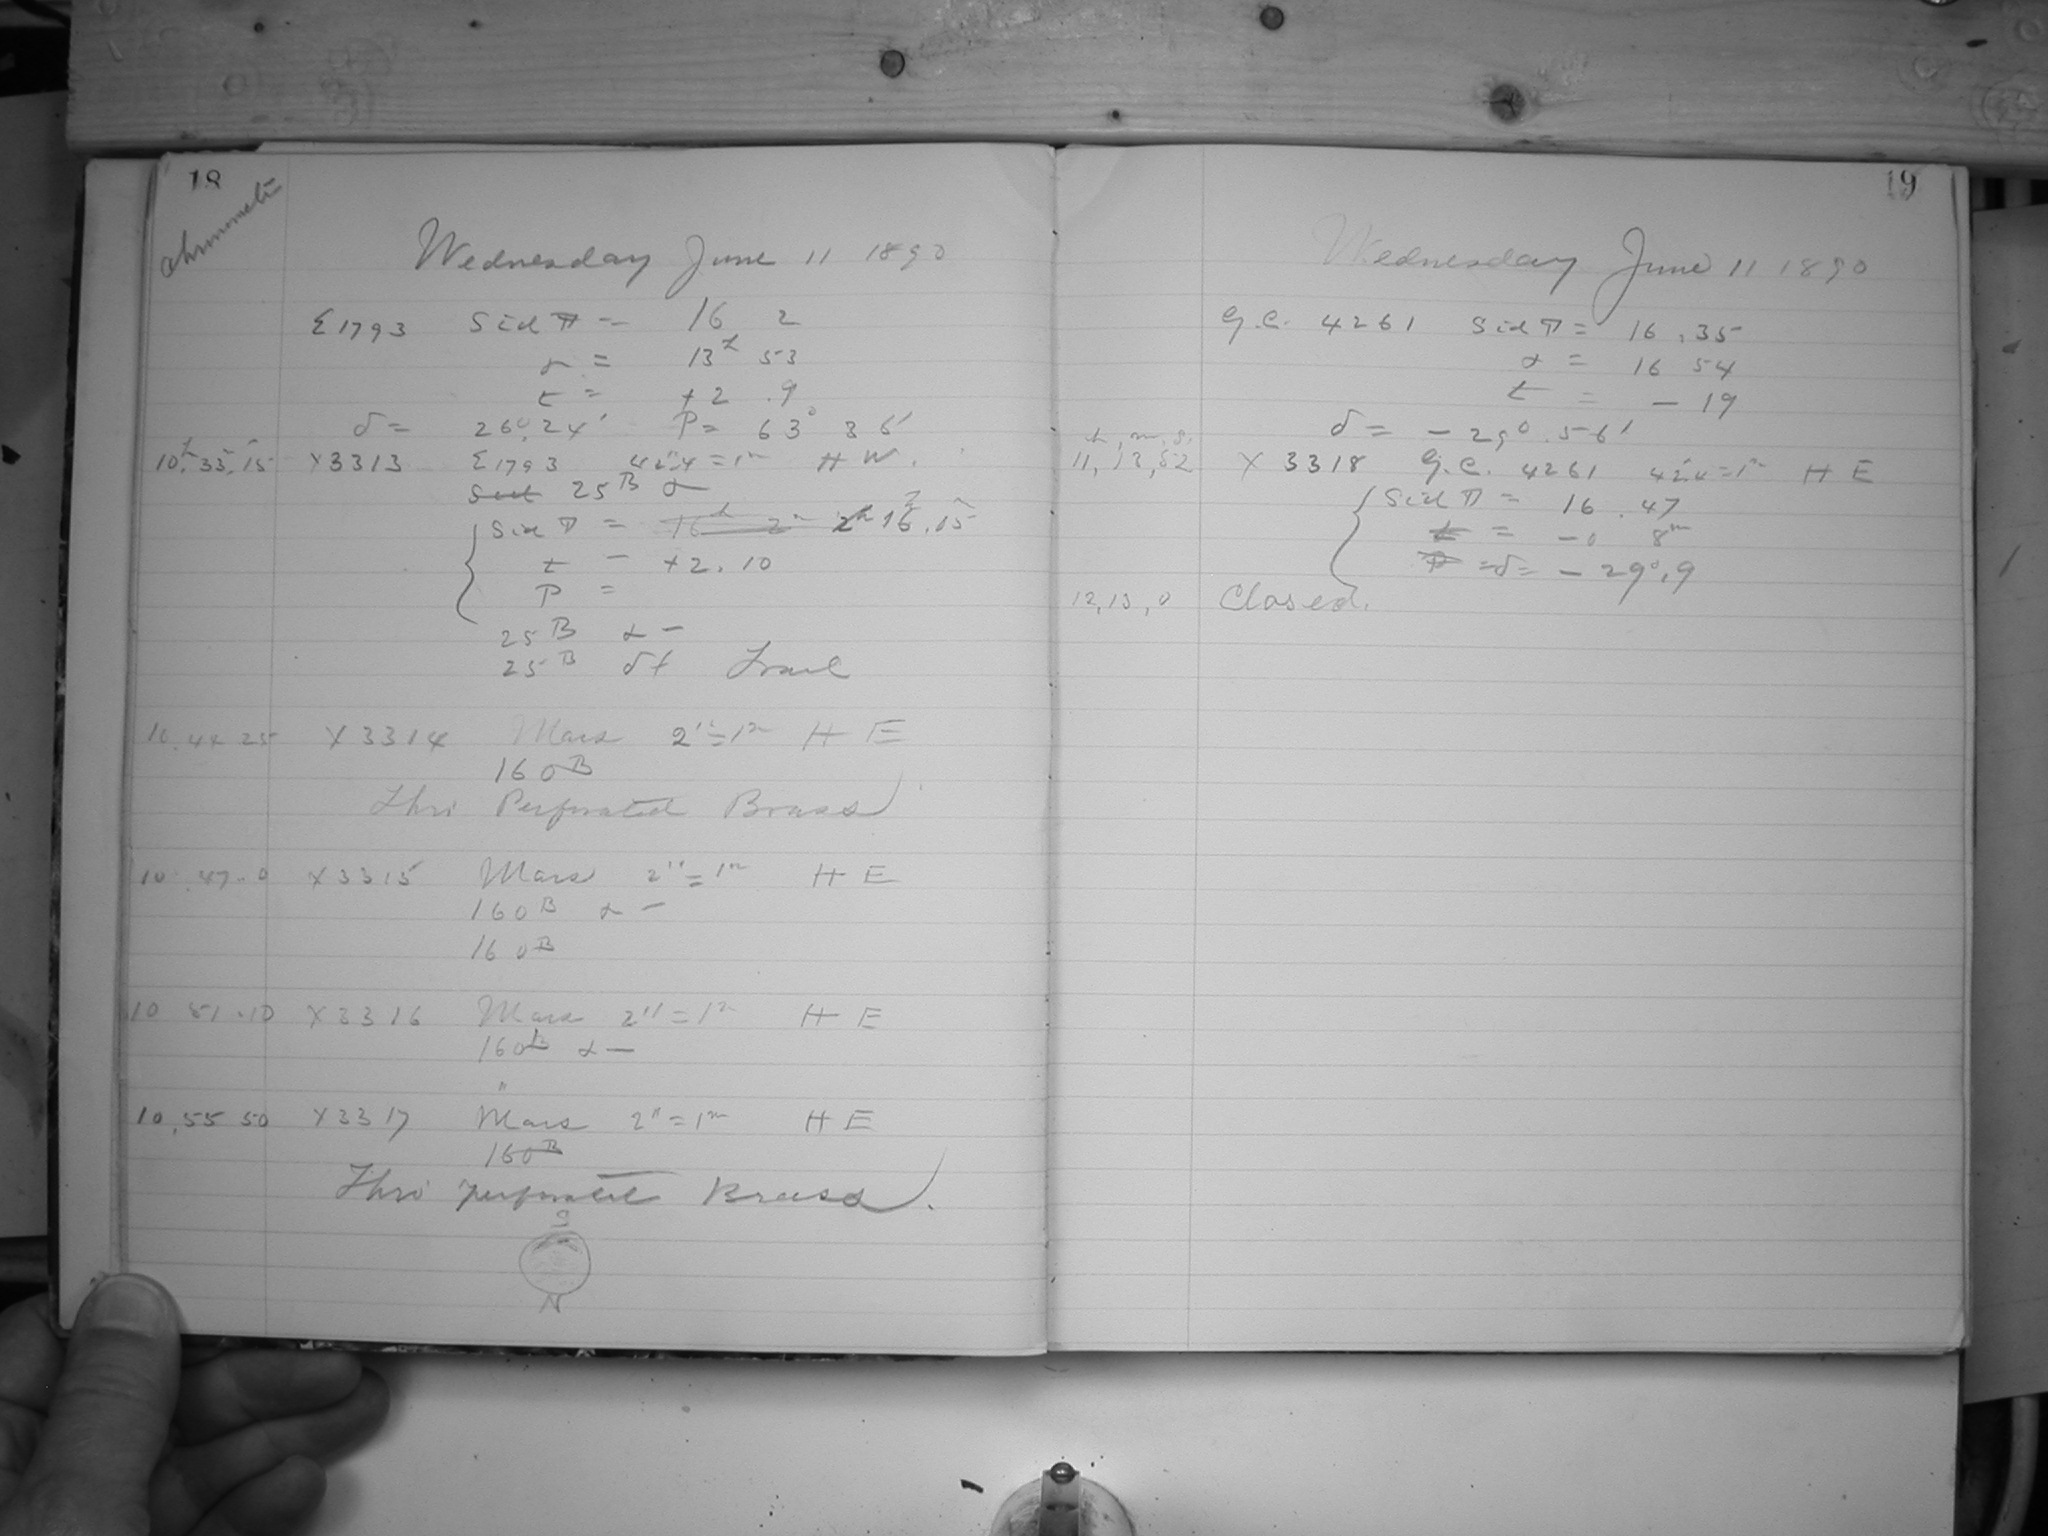 18
Wednesday June 11 1890
Σ1793 Sid T = 16 2
α = 13h 53
t = +2 .9
δ = 26°.24' P = 63° 36'
10h.35.15 X3313 Σ1793 42".4 = 1m H W.
25B α
Sid T = 16h 2m 2h 16h.15
t = +2.10
P =
25B α –
25B δ+ Trail
10.44 25 X3314 Mars 2" = 1m H E
160B
Thro Perforated Brass
10.47.0 X3315 Mars 2" = 1m H E
160B α –
160B
10 51.10 X3316 Mars 2" = 1m H E
160B α –
"
10.55 50 X3317 Mars 2" = 1m H E
160B
Thro perforated Brass.
S
N
19
Wednesday June 11 1890
G.C. 4261 Sid T = 16.35
α = 16 54
t = – 19
δ = – 29°.56'
h, m, s.
11, 13, 52 X 3318 G.C. 4261 42".4 = 1m H E
Sid T = 16.47
t = –0 8m
P = δ = – 29°.9
12,13,0 Closed.